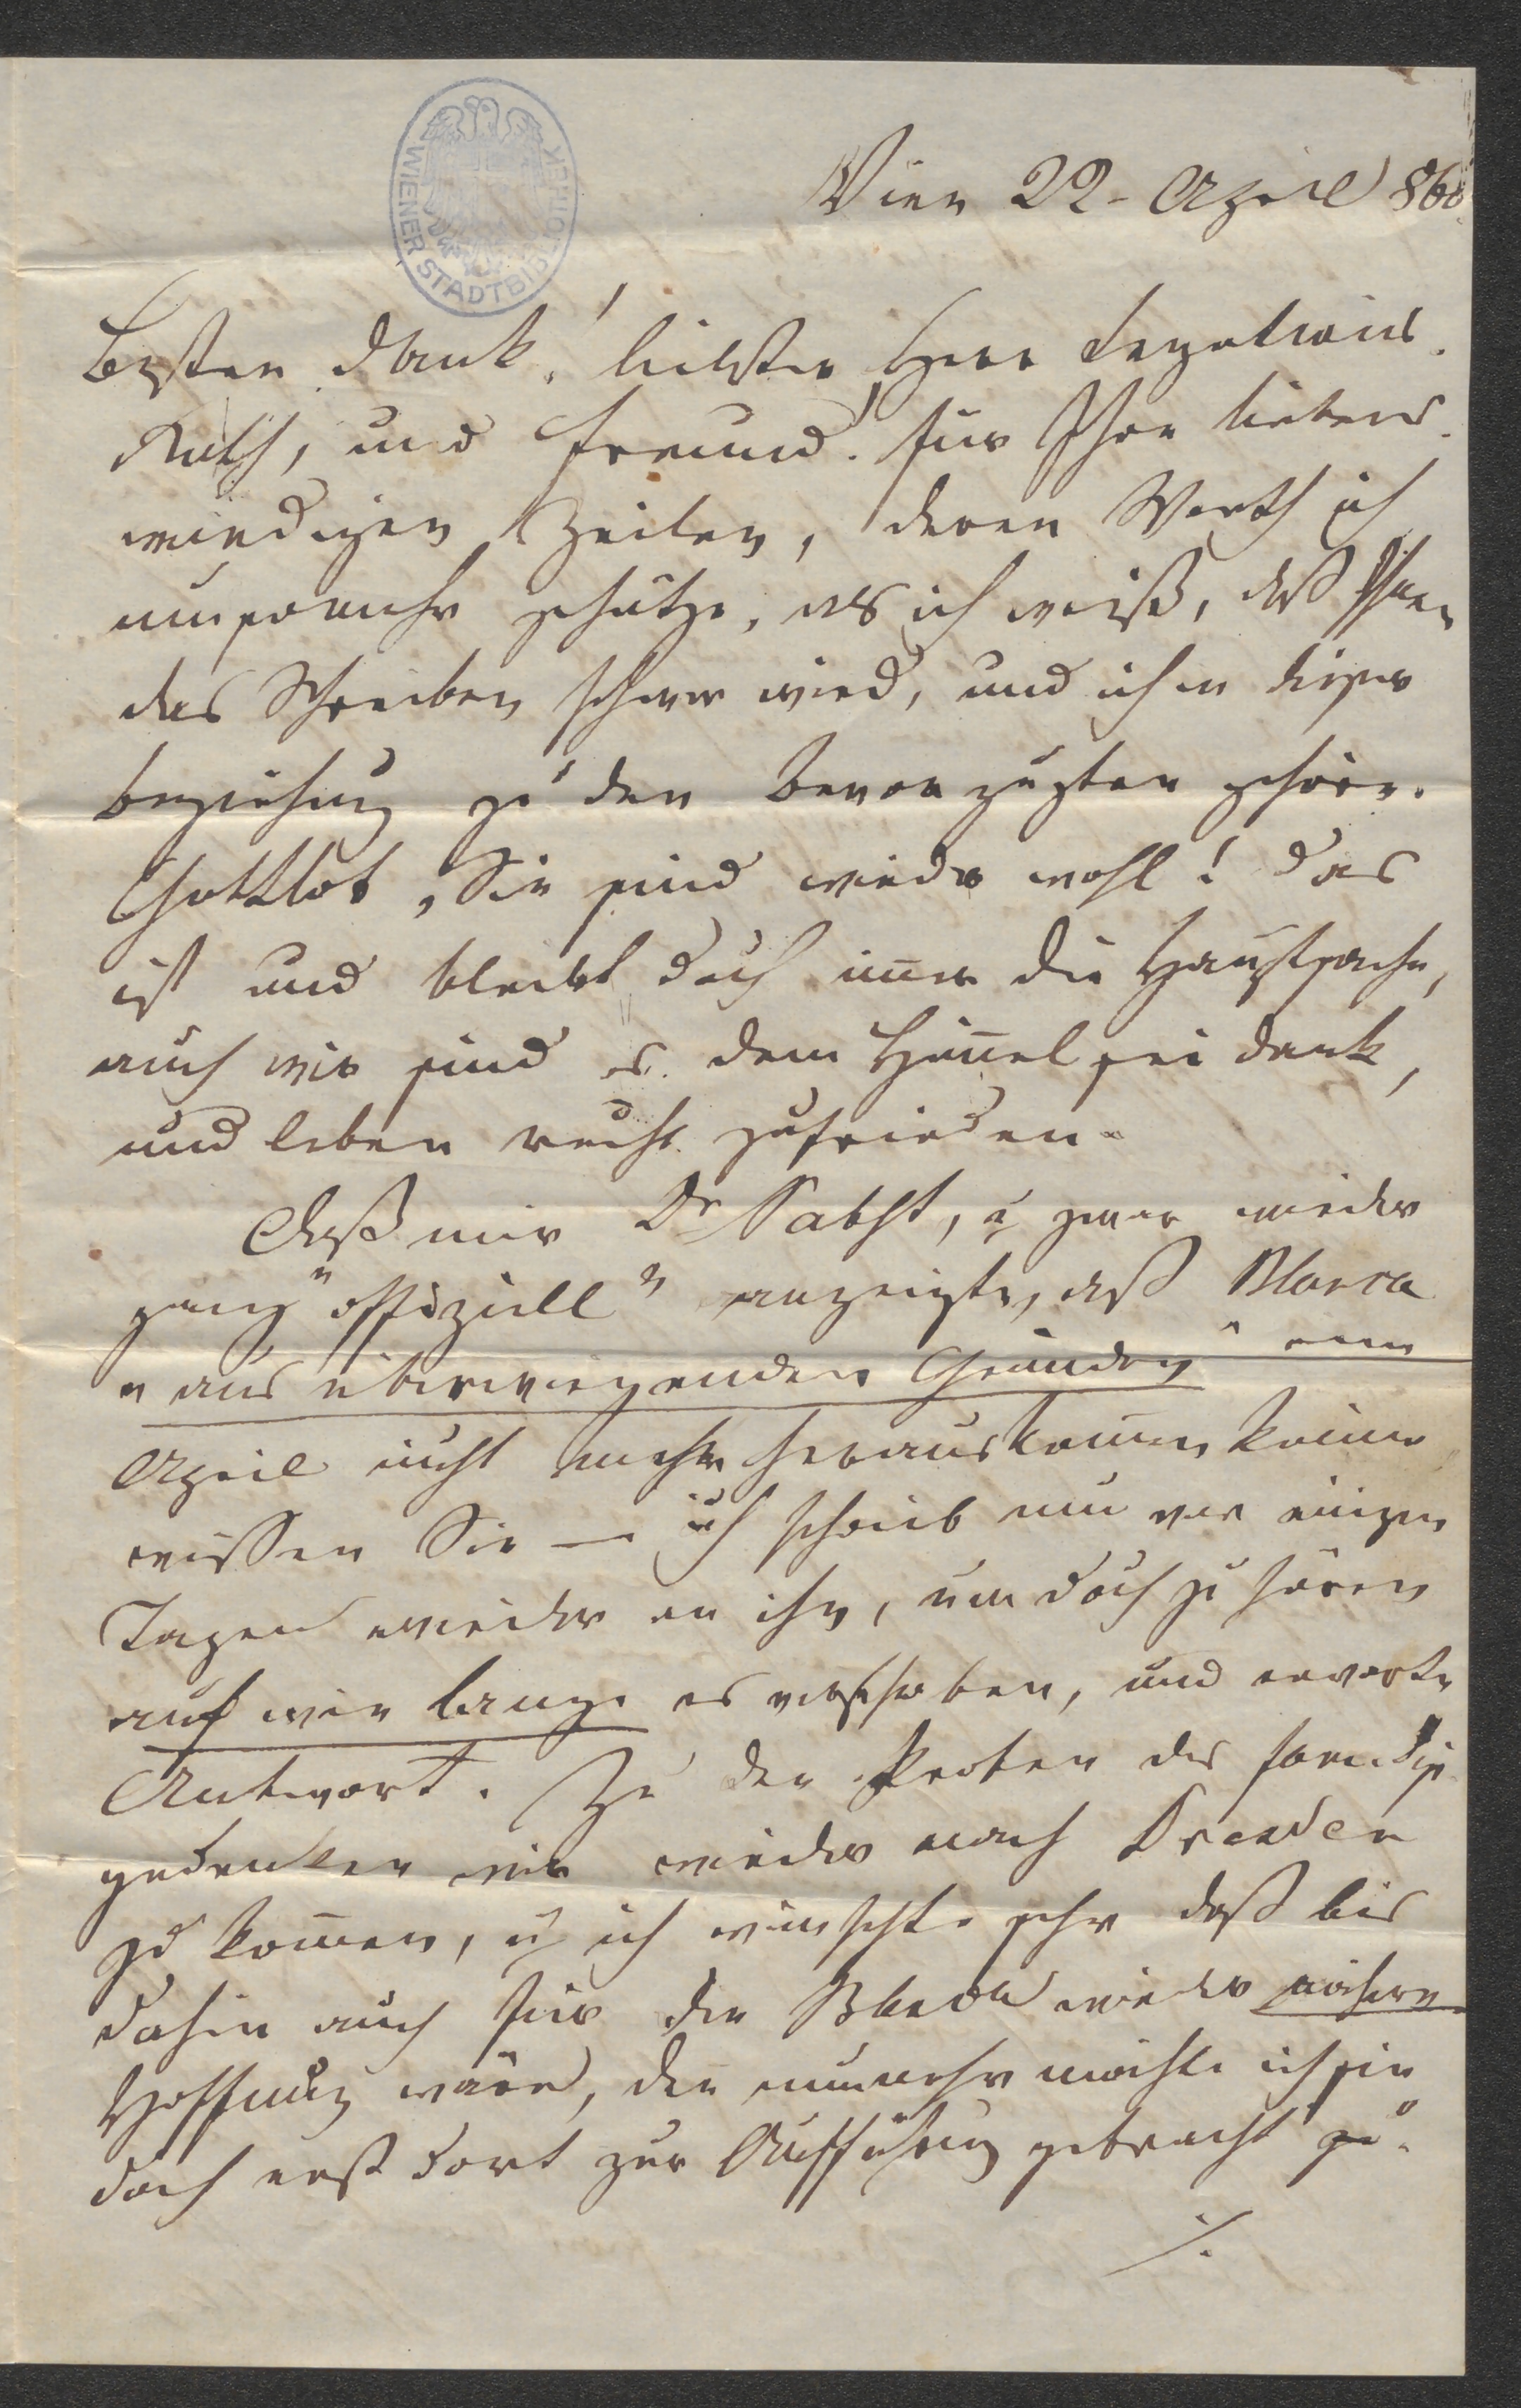 WIENER STADTBIBLIOTHEK
Wien 22. April 860
Besten Dank! liebster Herr Legations-
Rath, und Freund! für Ihre liebens-
würdigen Zeilen, deren Werth ich
umsomehr schätze, als ich weiß, daß Ihnen
das Schreiben schwer wird, und ich in dieser
Beziehung zu den Bevorzugten gehöre.
Gottlob, Sie sind wieder wohl! das
ist und bleibt doch im̅er die Hauptsache,
auch wir sind es dem Him̅el sei dank,
und leben recht zufrieden.
Daß mir Dr Pabst, u zwar wieder
ganz "offiziell" anzeigte, daß Wanda
"aus überwiegenden Gründen" im
April nicht mehr herauskom̅en könne
wissen Sie — ich schrieb nun vor einigen
Tagen wieder an ihn, um doch zu hören
auf wie lange es verschoben, und erwarte
Antwort. Zu den Proben der
gedenken wir wieder nach Dresden
zu kom̅en, u ich wünschte sehr daß bis
dahin auch für die Wanda wieder nähere
Hoffnung wäre, den nunmehr möchte ich sie
doch erst dort zur Aufführung gebracht zu
./.